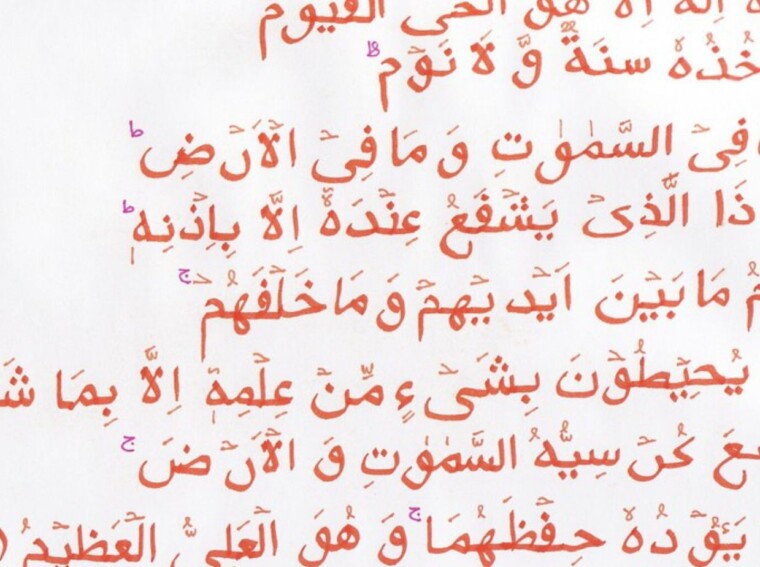 اِلٰهَ اِلَّا هُوَ الْحَیُّ الْقَیُّوْمُ
خُذُهٗ سِنَةٌ وَّ لَا نَوْمٌ ؕ
فِی السَّمٰوٰتِ وَ مَا فِی الْاَرْضِ ؕ
ذَا الَّذِیْ یَشْفَعُ عِنْدَهٗۤ اِلَّا بِاِذْنِهٖ ؕ
مُ مَا بَیْنَ اَیْدِیْهِمْ وَ مَا خَلْفَهُمْ ۚ
یُحِیْطُوْنَ بِشَیْءٍ مِّنْ عِلْمِهٖۤ اِلَّا بِمَا شَ
عَ كُرْسِیُّهُ السَّمٰوٰتِ وَ الْاَرْضَ ۚ
یَـُٔوْدُهٗ حِفْظُهُمَا ۚ وَ هُوَ الْعَلِیُّ الْعَظِیْمُ